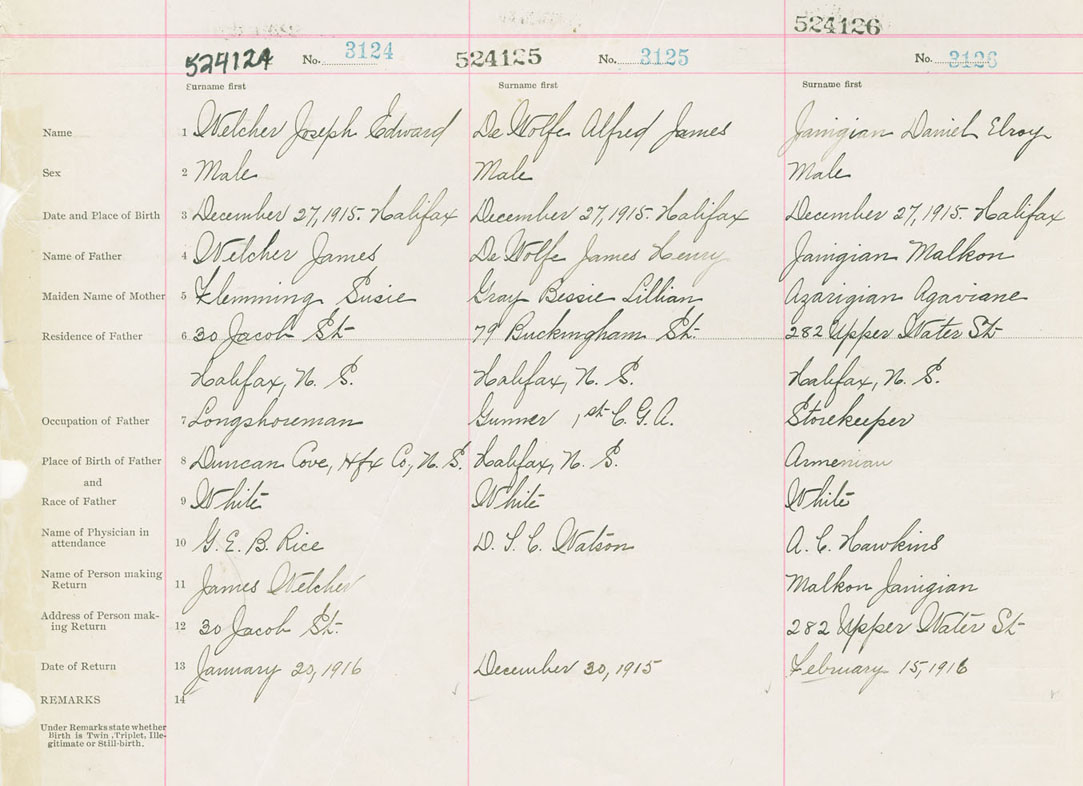 524126
524124 No. 3124 524125 No. 3125 No. 3126
Surname first Surname first Surname first
Name 1 Welcher Joseph Edward De Wolfe Alfred James Janigian Daniel Elroy
Sex 2 Male Male Male
Date and Place of Birth 3 December 27, 1915. Halifax December 27, 1915. Halifax December 27, 1915. Halifax
Name of Father 4 Welcher James De Wolfe James Henry Janigian Malkon
Maiden Name of Mother 5 Flemming Susie Gray Bessie Lillian Azarigian Agaviane
Residence of Father 6 30 Jacob St. 79 Buckingham St. 282 Upper Water St
Halifax, N. S. Halifax, N. S. Halifax, N. S.
Occupation of Father 7 Longshoreman Gunner 1st C. G. A. Storekeeper
Place of Birth of Father 8 Duncan Cove, Hfx Co, N. S. Halifax, N. S. Armenian
and
Race of Father 9 White White White
Name of Physician in
attendance 10 G. E. B. Rice D. S. C. Watson A. C. Hawkins
Name of Person making
Return 11 James Welcher Malkon Janigian
Address of Person mak-
ing Return 12 30 Jacob St. 282 Upper Water St
Date of Return 13 January 20, 1916 December 30, 1915 February 15, 1916
REMARKS 14
Under Remarks state whether
Birth is Twin, Triplet, Ille-
gitimate or Still-birth.